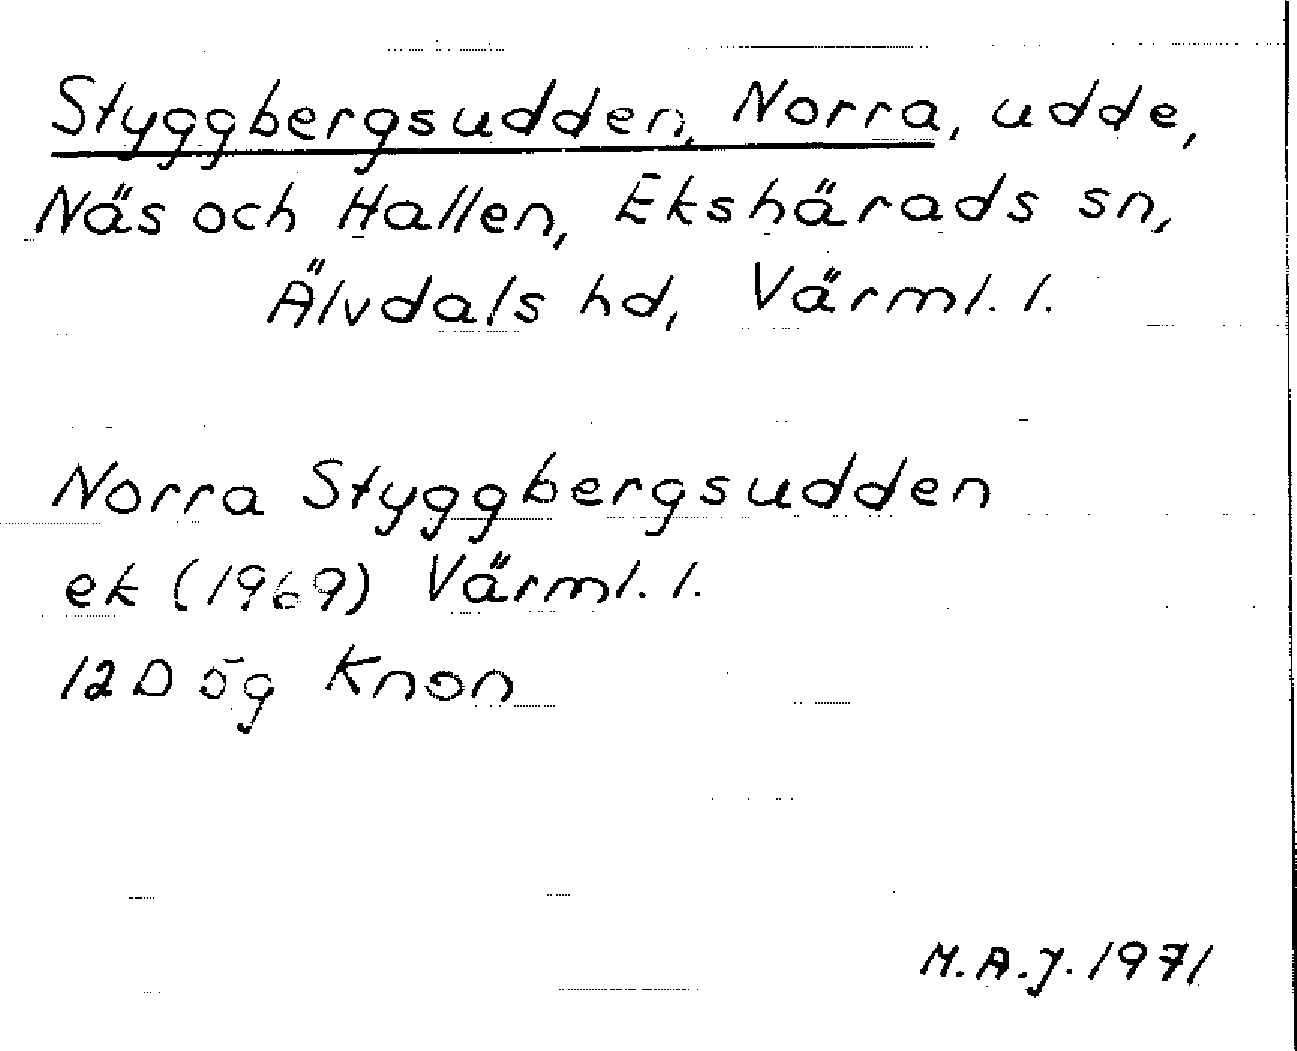 Styggbergsudden, Norra, udde,
Näs och Hallen, Ekshärads sn,
Älvdals hd, Värml. l.
Norra Styggbergsudden
ek (1969) Värml. l.
12D 5g Knon
M.A.J. 1971